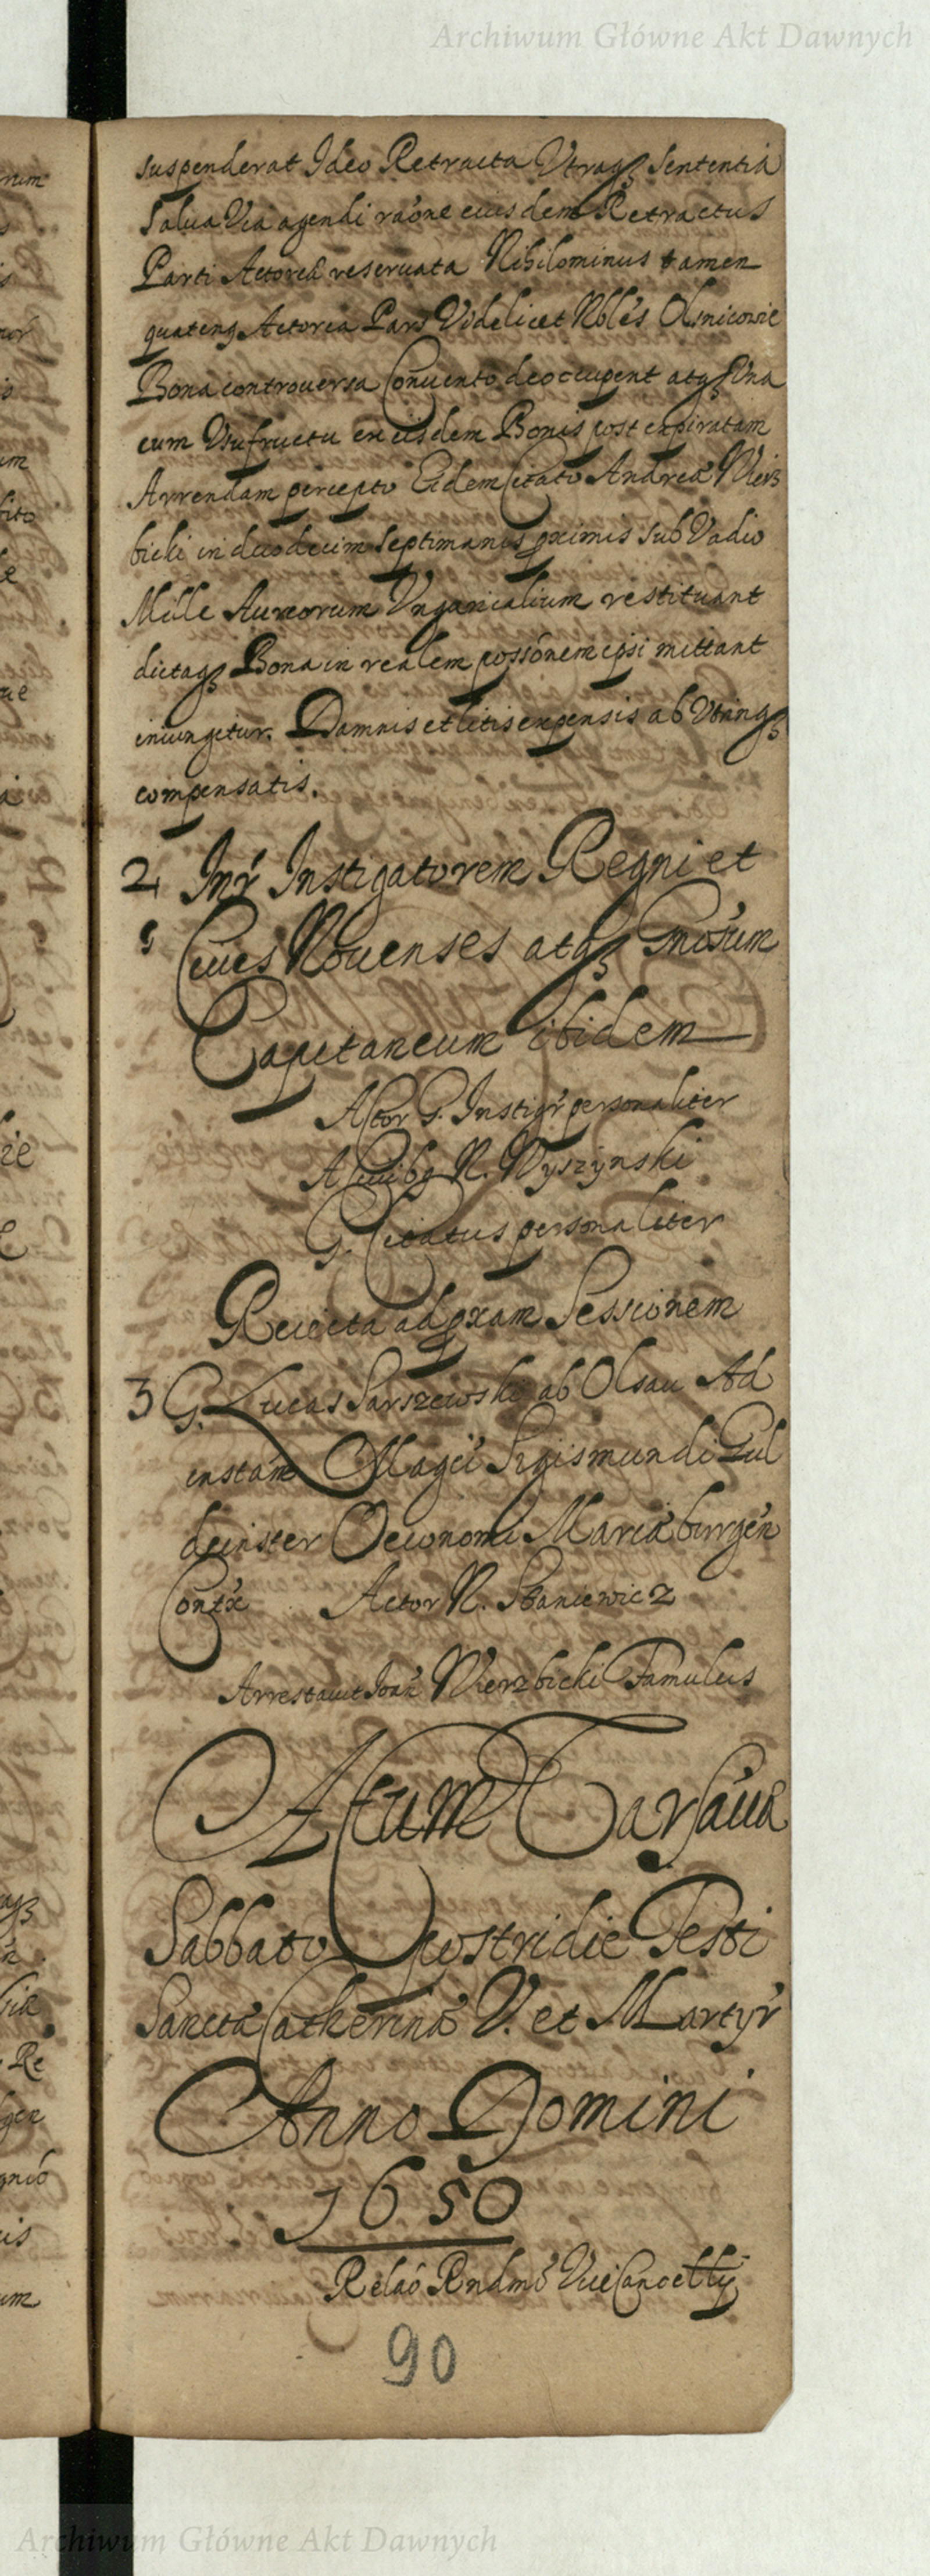 Archiwum Główne Akt Dawnych
suspenderat Ideo Retracta Utraq3 Sententia
Salua Via agendi raóne eiusdem Retractus
Parti Actoreæ reseruata Nihilominus tamen
quaten9 Actorea Pars Videlicet Nbles
Bona controuersa Conuento deoccupent atq3 Una
cum Usufructu ex eisdem Bonis post expiratam
Arrendam percepto Eidem Citato Andreæ Wierz
bicki in duodecim septimanis pximis sub Vadio
Mille Aureorum Vngaricalium restituant
dictaq3 Bona in realem possónem ipsi mittant
iniungetur. Damnis et litis expensis ab Utrinq3
compensatis.
2 Intr Instigatorem Regni et
Ciues Nouenses atq3 Gnósum
Capitaneum ibidem
Actor G. Instigr personaliter
A Ciuib9 N. Wyszynski
G. Citatus personaliter
Reiecta ad pxam Sessionem
3 G. Lucas Parszewski ab Olsau Ad
instam Magci Sigismundi Gul
deinster Oeconomi Mariæburgen
Contx Actor N. Staniewicz
Arrestauit Ioan Wierzbicki Famulus
Actum Varsauiæ
Sabbato postridie Festi
Sanctæ Catherinæ V. et Martyr
Anno Domini
1650
Relaó Rndmi Vice Cancellij
90
Archiwum Główne Akt Dawnych